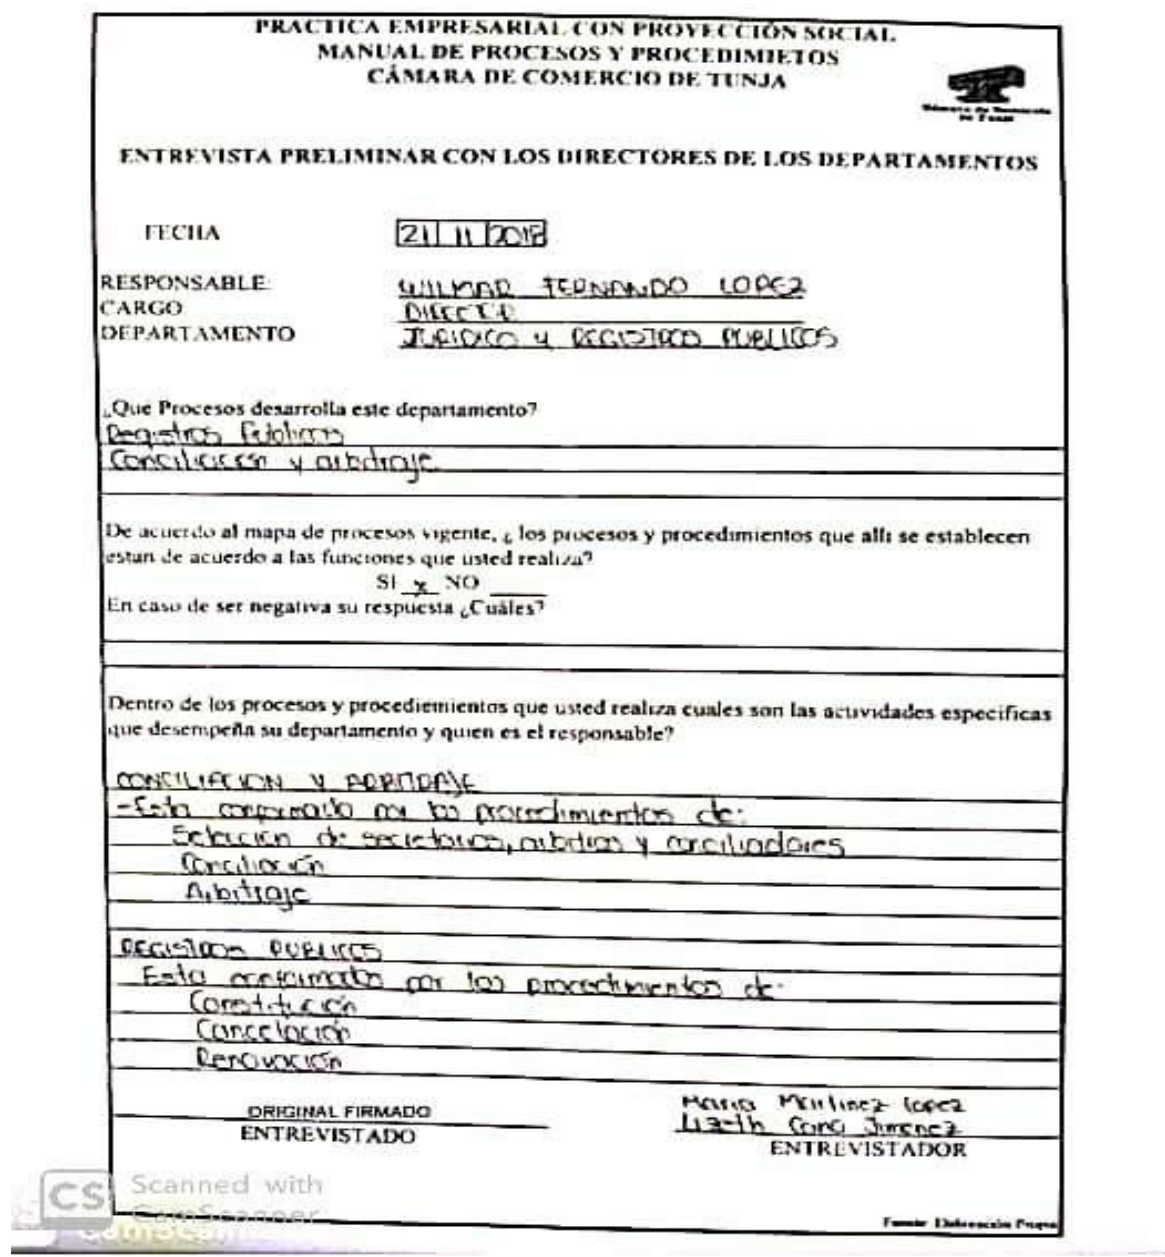 PRACTICA EMPRESARIAL CON PROYECCIÓN SOCIAL
MANUAL DE PROCESOS Y PROCEDIMIETOS
CÁMARA DE COMERCIO DE TUNJA
Cámara de Comercio
de Tunja
ENTREVISTA PRELIMINAR CON LOS DIRECTORES DE LOS DEPARTAMENTOS
FECHA 21 11 2018
RESPONSABLE: WILMAR FERNANDO LOPEZ
CARGO DIRECTOR
DEPARTAMENTO JURIDICO Y REGISTROS PUBLICOS
¿Que Procesos desarrolla este departamento?
Registros Públicos
Conciliación y arbitraje
De acuerdo al mapa de procesos vigente, ¿ los procesos y procedimientos que alli se establecen
estan de acuerdo a las funciones que usted realiza?
SI x NO
En caso de ser negativa su respuesta ¿Cuáles?
Dentro de los procesos y procediemientos que usted realiza cuales son las actividades especificas
que desempeña su departamento y quien es el responsable?
CONCILIACION Y ARBITRAJE
-Esta conformado por los procedimientos de:
Selección de secretarios, arbitros y conciliadores
Conciliación
Arbitraje
REGISTROS PUBLICOS
Esta conformado por los procedimientos de:
Constitución
Cancelación
Renovación
ORIGINAL FIRMADO
ENTREVISTADO
Maria Martinez Lopez
Lizeth Jimenez
ENTREVISTADOR
CS Scanned with
CamScanner
Fuente: Elaboración Propia